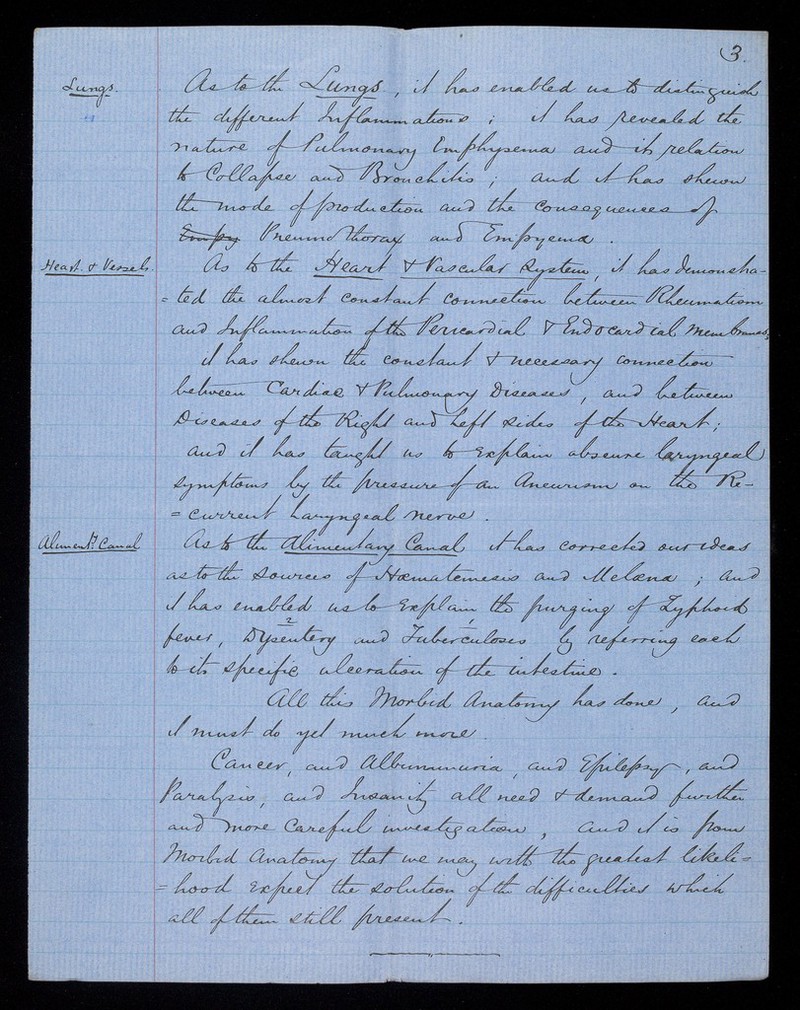 3.
Lungs.
As to the Lungs, it has enabled us to distinguish
the different Inflammations ; it has revealed the
nature of Pulmonary Emphysema and its relation
to Collapse and Bronchitis ; and it has shewn
the mode of production and the consequences of
Empy Pneumothorax and Empyema .
Heart & Vessels.
As to the Heart & Vascular System, it has demonstra-
=ted the almost constant connection between Rheumatism
and Inflammation of the Pericardial & Endocardial Membranes;
it has shewn the constant & necessary connection
between Cardiac & Pulmonary Diseases, and between
Diseases of the Right and Left sides of the Heart;
and it has taught us to explain obscure laryngeal
symptoms by the pressure of an Aneurism on the Re-
=current Laryngeal nerve .
Aliment.y Canal
As to the Alimentary Canal it has corrected our ideas
as to the sources of Hæmatemesis and Melæna ; and
it has enabled us to explain the purging of Typhoid
fever, Dysentery and Tuberculoses by referring each
to its specific ulceration of the intestine .
All this Morbid Anatomy has done, and
it must do yet much more.
Cancer, and Albuminuria, and Epilepsy, and
Paralysis, and Insanity all need & demand further
and more careful investigation, and it is from
Morbid Anatomy that we may with the greatest likeli=
=hood expect the solution of the difficulties which
all of them still present .